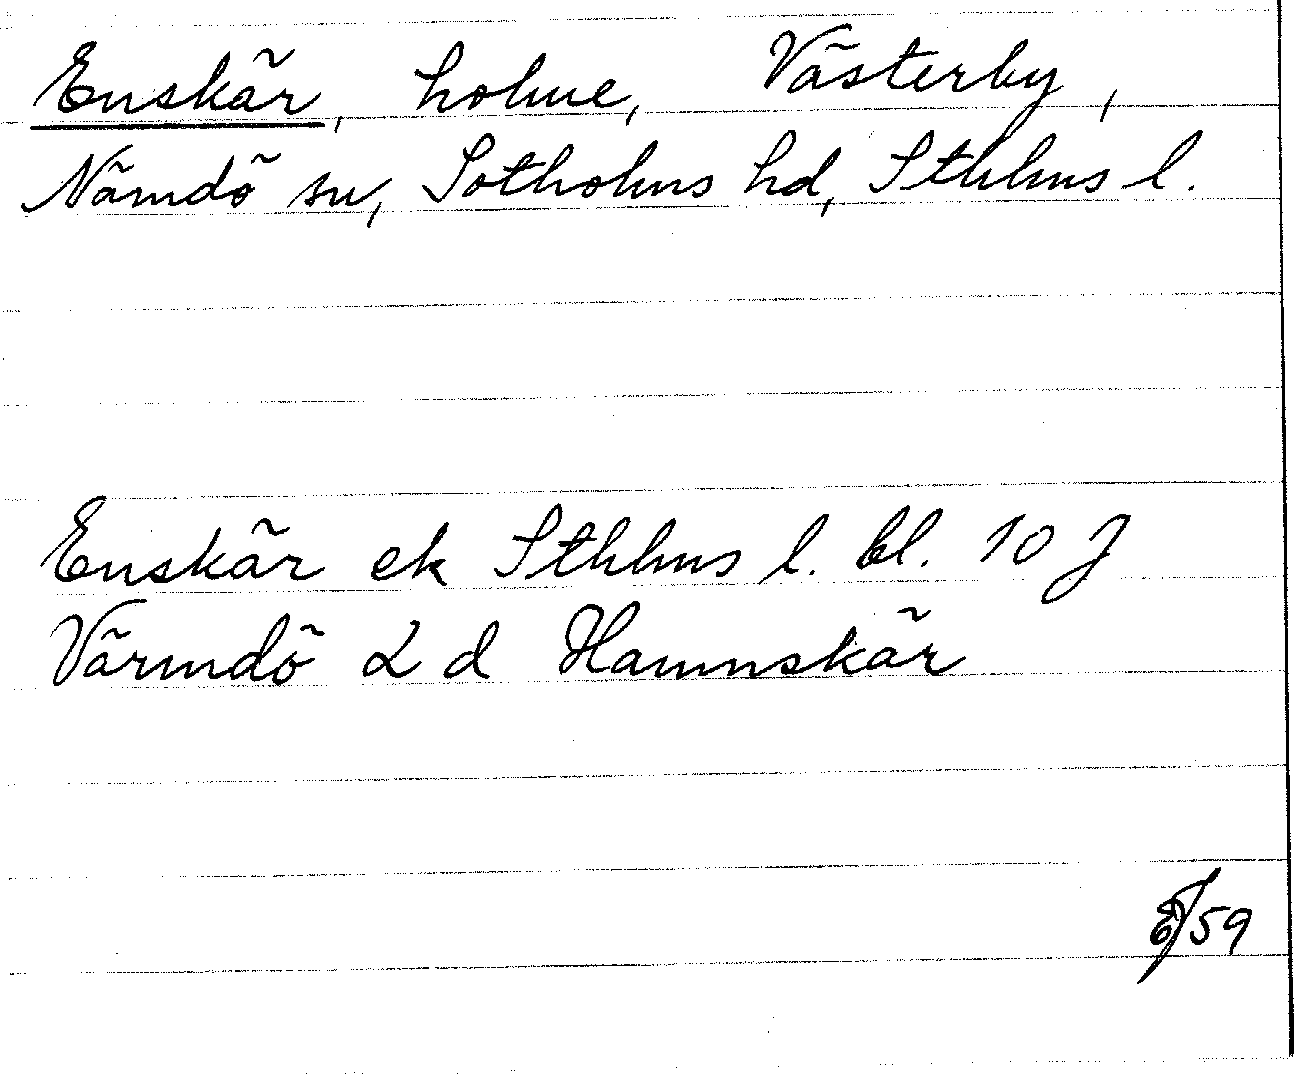 Enskär, holme, Västerby,
Nämdö sn, Sotholms hd, Sthlms l.
Enskär ek Sthlms l. bl. 10 J
Värmdö 2 d Hamnskär
/59